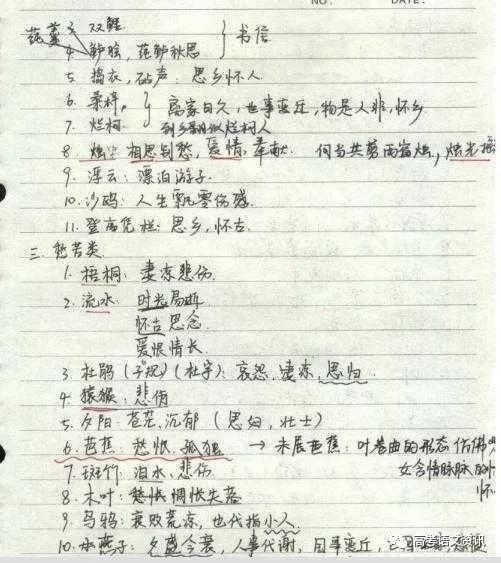 NO. DATE.
3. 双鲤 } 书信
莼羹
4. 鲈脍, 莼鲈秋思
5. 捣衣, 砧声: 思乡怀人
6. 桑梓, } 离家日久, 世事变迁, 物是人非, 怀乡
7. 烂柯: 到乡翻似烂柯人
8. 烛: 相思别愁, 爱情, 奉献. 何当共剪西窗烛,
9. 浮云: 漂泊游子
10. 沙鸥: 人生飘零伤感
11. 登高凭栏: 思乡, 怀古
三. 愁苦类
1. 梧桐: 凄凉悲伤
2. 流水: 时光易逝
怀古思念
爱恨情长
3 杜鹃 (子规) (杜宇): 哀怨, 凄凉, 思归
4 猿猴: 悲伤
5. 夕阳: 苍茫, 沉郁 (思妇, 壮士)
6. 芭蕉: 愁恨 孤独 → 未展芭蕉: 叶卷曲的形态仿佛
7. 斑竹: 泪水, 悲伤 女含情脉脉的
8. 木叶: 愁怅惆怅失落 怀
9. 乌鸦: 衰败荒凉, 也代指小人
10. 燕子: 夕盛今衰, 人事代谢, 因事变丘,
高考语文资讯